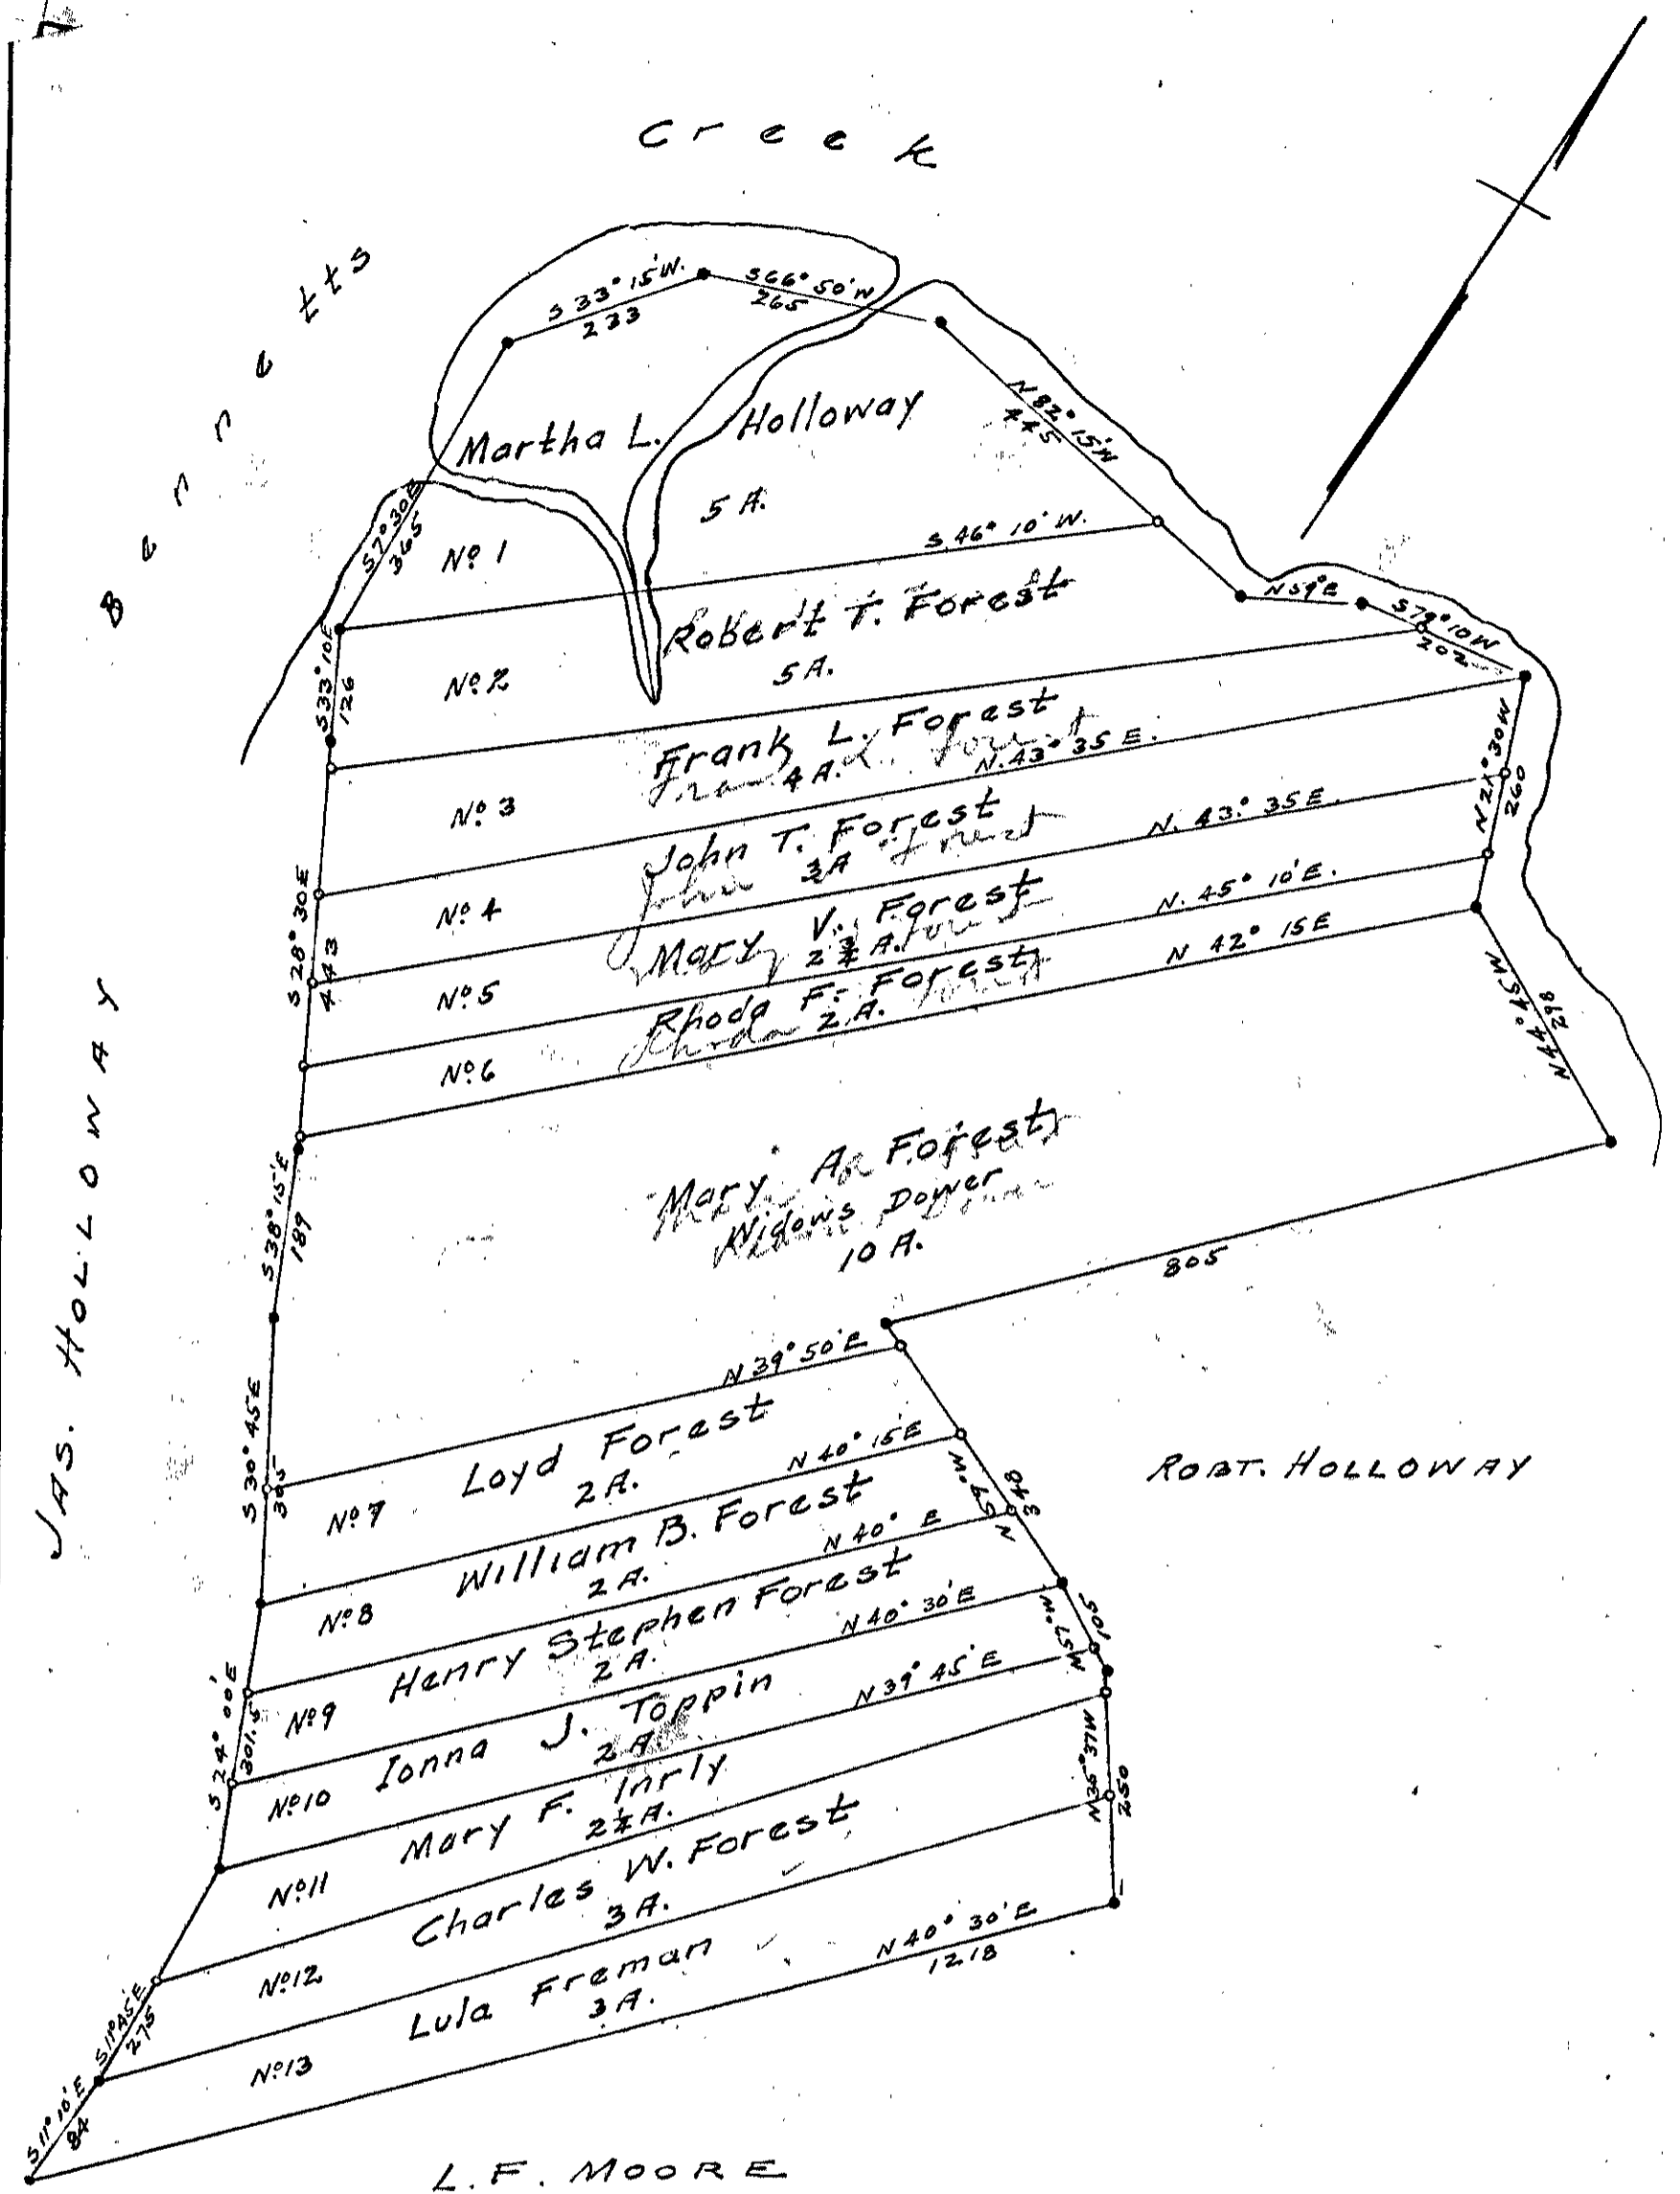 Creek
Bennetts
S 33° 15' W.
233
S 66° 50' W
265
N 82° 15' W
445
Martha L. Holloway
5 A.
S 7° 30 E
365
Nº 1
S. 46° 10' W.
N 59° E
S 79° 10 W
202
Robert T. Forest
5 A.
Nº 2
S 33° 10 E
126
Frank L. Forest
4 A.
N. 43° 35 E.
Nº 3
N 21° 30 W
260
John T. Forest
3 A
N. 43° 35 E.
Nº 4
S 28° 30 E
443
Mary V. Forest
2 3/4 A.
N. 45° 10' E.
Nº 5
Rhoda F. Forest
2 A.
N 42° 15 E
Nº 6
N 44° 45 W
298
JAS. HOLLOWAY
Mary A. Forest
Widows Dower
10 A.
S 38° 15' E
189
805
N 39° 50' E
S 30° 45 E
305
Loyd Forest
2 A.
Nº 7
N 40° 15 E
ROBT. HOLLOWAY
N 59° W
348
William B. Forest
2 A.
Nº 8
N 40° E
Henry Stephen Forest
2 A.
Nº 9
N 40° 30' E
N 57° W
105
S 24° 00' E
301.5
Ionna J. Toppin
2 A.
Nº 10
N 39° 45' E
Mary F. Inrly
2 1/4 A.
Nº 11
N 36° 37 W
250
Charles W. Forest
3 A.
Nº 12
S 11° 45' E
275
Lula Freman
3 A.
Nº 13
N 40° 30' E
1218
S 11° 10' E
84
L. F. MOORE